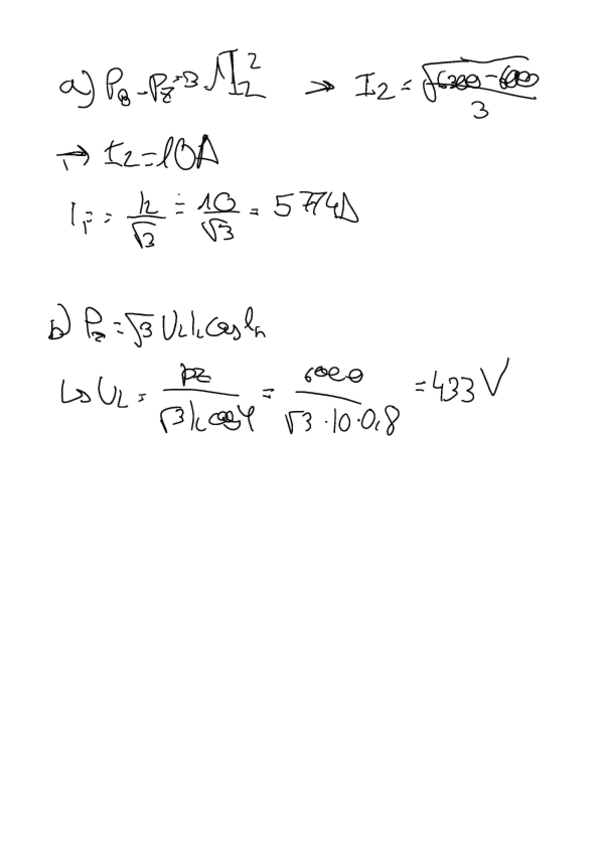 a) P_B - P_Z = 3 · 1 I_L^2 ⇒ I_L = √(6300 - 6000) / 3
⇒ I_L = 10A
I_F = I_L/√3 = 10/√3 = 5,774A
b) P_Z = √3 U_L I_L cos φ_n
↳ U_L = P_Z / (√3 I_L cos φ) = 6000 / (√3 · 10 · 0,8) = 433 V